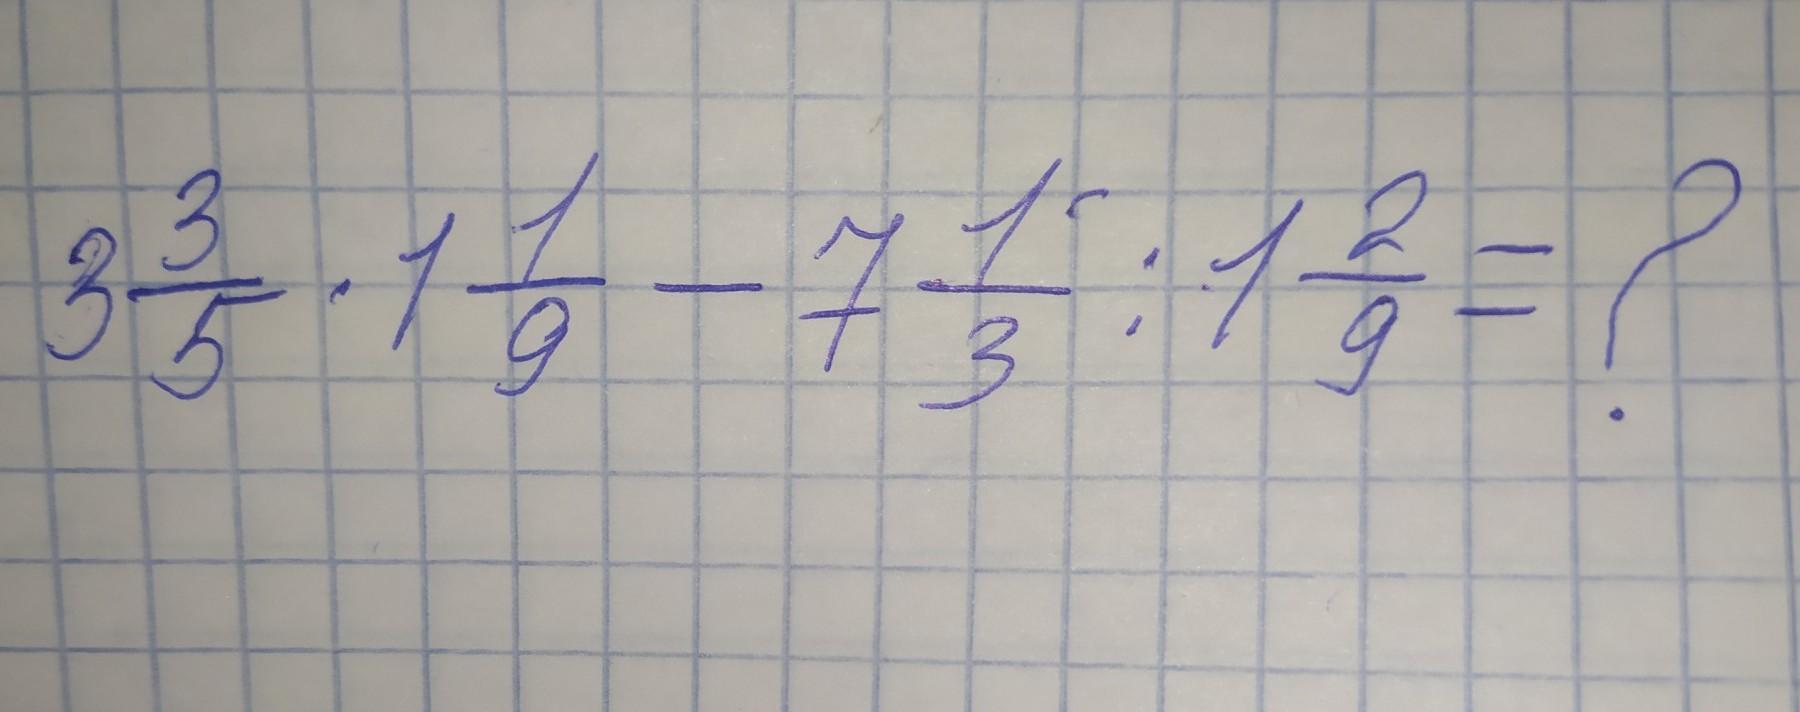 3 3/5 · 1 1/9 − 7 1/3 : 1 2/9 = ?